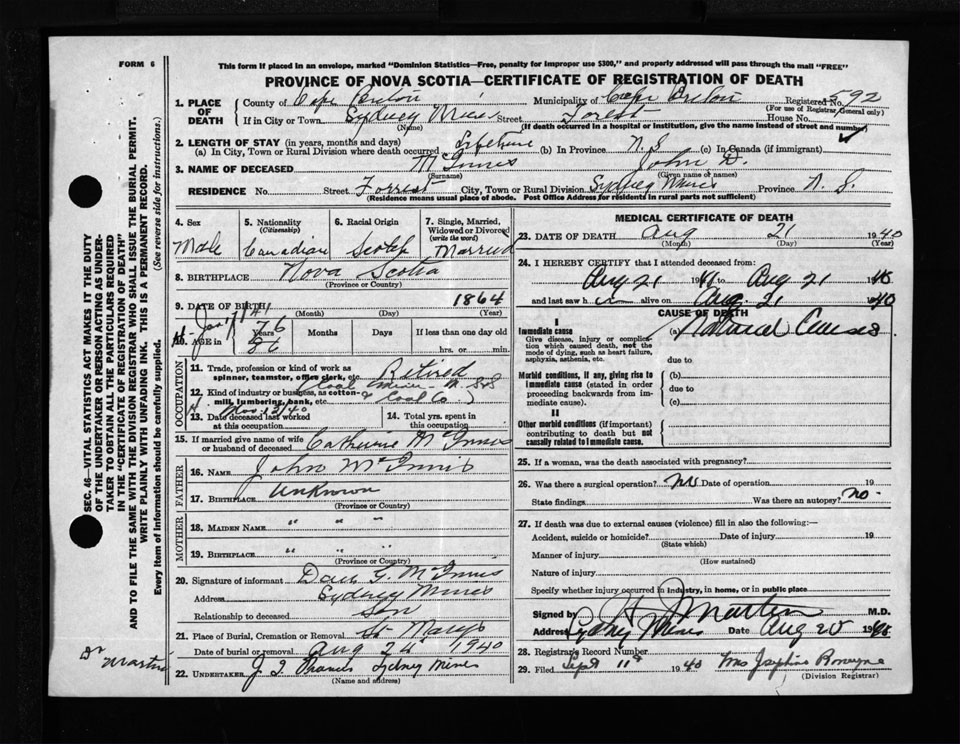 FORM 6
This form if placed in an envelope, marked "Dominion Statistics—Free, penalty for improper use $300," and properly addressed will pass through the mail "FREE"
PROVINCE OF NOVA SCOTIA—CERTIFICATE OF REGISTRATION OF DEATH
1. PLACE OF DEATH
County of Cape Breton Municipality of Cape Breton Registered No. 592
(For use of Registrar General only)
If in City or Town Sydney Mines Street Forest House No.
(Name) (If death occurred in a hospital or institution, give the name instead of street and number)
2. LENGTH OF STAY (in years, months and days)
(a) In City, Town or Rural Division where death occurred Lifetime (b) In Province N.S (c) In Canada (if immigrant)
3. NAME OF DECEASED McInnis John D.
(Surname) (Given name or names)
RESIDENCE No. Street Forrest City, Town or Rural Division Sydney Mines Province N.S.
(Residence means usual place of abode. Post Office Address for residents in rural parts not sufficient)
4. Sex Male
5. Nationality (Citizenship) Canadian
6. Racial Origin Scotch
7. Single, Married, Widowed or Divorced (write the word) Married
8. BIRTHPLACE Nova Scotia
(Province or Country)
9. DATE OF BIRTH 1864
(Month) (Day) (Year)
10. AGE in 76 Years Months Days If less than one day old
hrs. or min.
OCCUPATION
11. Trade, profession or kind of work as spinner, teamster, office clerk, etc. Retired
12. Kind of industry or business, as cotton-mill, lumbering, bank, etc. Coal
13. Date deceased last worked at this occupation
14. Total yrs. spent in this occupation
15. If married give name of wife or husband of deceased Catherine McInnis
FATHER
16. NAME John McInnis
17. BIRTHPLACE Unknown
(Province or Country)
MOTHER
18. MAIDEN NAME " " "
19. BIRTHPLACE " " "
(Province or Country)
20. Signature of informant G. McInnis
Address Sydney Mines
Relationship to deceased Son
21. Place of Burial, Cremation or Removal St. Marys
Date of burial or removal Aug 24 1940
22. UNDERTAKER Sydney Mines
(Name and address)
MEDICAL CERTIFICATE OF DEATH
23. DATE OF DEATH Aug 21 1940
(Month) (Day) (Year)
24. I HEREBY CERTIFY that I attended deceased from:
Aug 21 to Aug 21 1940
and last saw h alive on Aug. 21 1940
CAUSE OF DEATH
I
Immediate cause (a) Natural Causes
Give disease, injury or complication which caused death, not the mode of dying, such as heart failure, asphyxia, asthenia, etc.
due to
Morbid conditions, if any, giving rise to immediate cause (stated in order proceeding backwards from immediate cause).
(b)
due to
(c)
II
Other morbid conditions (if important) contributing to death but not causally related to immediate cause.
25. If a woman, was the death associated with pregnancy?
26. Was there a surgical operation? Date of operation 19
State findings Was there an autopsy? no
27. If death was due to external causes (violence) fill in also the following:—
Accident, suicide or homicide? Date of injury 19
(State which)
Manner of injury
(How sustained)
Nature of injury
Specify whether injury occurred in industry, in home, or in public place
Signed by Martin M.D.
Address Sydney Mines Date Aug 20
28. Registrar's Record Number
29. Filed Sept 11 1940 Mrs Josephine
(Division Registrar)
SEC. 46—VITAL STATISTICS ACT MAKES IT THE DUTY
OF THE UNDERTAKER OR PERSON ACTING AS UNDER-
TAKER TO OBTAIN ALL THE PARTICULARS REQUIRED
IN THE "CERTIFICATE OF REGISTRATION OF DEATH"
AND TO FILE THE SAME WITH THE DIVISION REGISTRAR WHO SHALL ISSUE THE BURIAL PERMIT.
WRITE PLAINLY WITH UNFADING INK. THIS IS A PERMANENT RECORD.
Every item of information should be carefully supplied. (See reverse side for instructions.)
Dr Martin